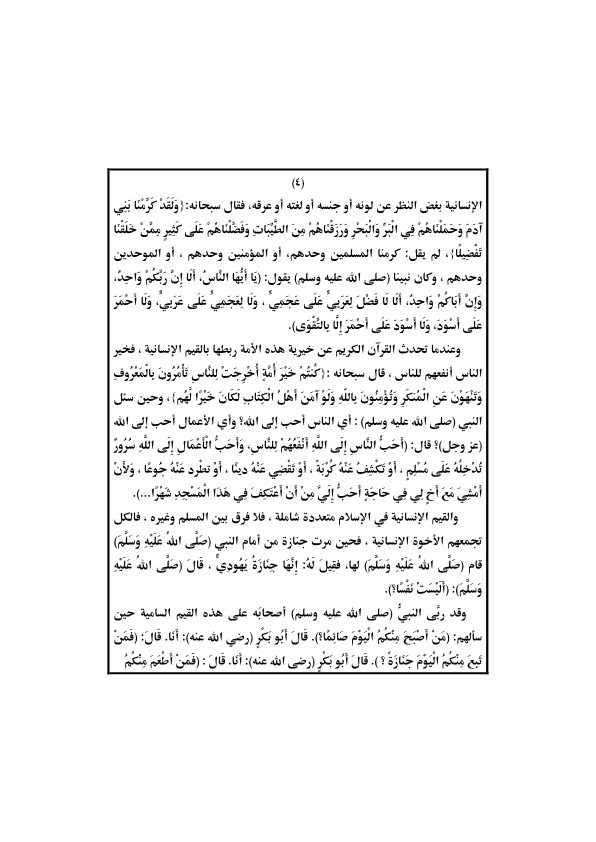 (٤)
الإنسانية بغض النظر عن لونه أو جنسه أو لغته أو عرقه، فقال سبحانه:{وَلَقَدْ كَرَّمْنَا بَنِي
آدَمَ وَحَمَلْنَاهُمْ فِي الْبَرِّ وَالْبَحْرِ وَرَزَقْنَاهُمْ مِنَ الطَّيِّبَاتِ وَفَضَّلْنَاهُمْ عَلَى كَثِيرٍ مِمَّنْ خَلَقْنَا
تَفْضِيلًا}، لم يقل: كرمنا المسلمين وحدهم، أو المؤمنين وحدهم ، أو الموحدين
وحدهم ، وكان نبينا (صلى الله عليه وسلم) يقول: (يَا أَيُّهَا النَّاسُ، أَلَا إِنَّ رَبَّكُمْ وَاحِدٌ،
وَإِنَّ أَبَاكُمْ وَاحِدٌ، أَلَا لَا فَضْلَ لِعَرَبِيٍّ عَلَى عَجَمِيٍّ ، وَلَا لِعَجَمِيٍّ عَلَى عَرَبِيٍّ، وَلَا أَحْمَرَ
عَلَى أَسْوَدَ، وَلَا أَسْوَدَ عَلَى أَحْمَرَ إِلَّا بِالتَّقْوَى).
وعندما تحدث القرآن الكريم عن خيرية هذه الأمة ربطها بالقيم الإنسانية ، فخير
الناس أنفعهم للناس ، قال سبحانه :{كُنْتُمْ خَيْرَ أُمَّةٍ أُخْرِجَتْ لِلنَّاسِ تَأْمُرُونَ بِالْمَعْرُوفِ
وَتَنْهَوْنَ عَنِ الْمُنكَرِ وَتُؤْمِنُونَ بِاللّهِ وَلَوْ آمَنَ أَهْلُ الْكِتَابِ لَكَانَ خَيْرًا لَّهُم}، وحين سئل
النبي (صلى الله عليه وسلم) : أي الناس أحب إلى الله؟ وأي الأعمال أحب إلى الله
(عز وجل)؟ قال: (أَحَبُّ النَّاسِ إِلَى اللَّهِ أَنْفَعُهُمْ لِلنَّاسِ، وَأَحَبُّ الْأَعْمَالِ إِلَى اللَّهِ سُرُورٌ
تُدْخِلُهُ عَلَى مُسْلِمٍ ، أَوْ تَكْشِفُ عَنْهُ كُرْبَةً ، أَوْ تَقْضِي عَنْهُ دينًا ، أَوْ تَطْرد عَنْهُ جُوعًا ، وَلأَنْ
أَمْشِيَ مَعَ أخٍ لِي فِي حَاجَةٍ أَحَبُّ إِلَيَّ مِنْ أَنْ أَعْتَكِفَ فِي هَذَا الْمَسْجِدِ شَهْرًا...).
والقيم الإنسانية في الإسلام متعددة شاملة ، فلا فرق بين المسلم وغيره ، فالكل
تجمعهم الأخوة الإنسانية ، فحين مرت جنازة من أمام النبي (صَلَّى اللهُ عَلَيْهِ وَسَلَّمَ)
قام (صَلَّى اللهُ عَلَيْهِ وَسَلَّمَ) لها، فقِيلَ لَهُ: إِنَّهَا جِنَازَةُ يَهُودِيٍّ ، قَالَ (صَلَّى اللهُ عَلَيْهِ
وَسَلَّمَ): (أَلَيْسَتْ نَفْسًا؟).
وقد ربَّى النبيُّ (صلى الله عليه وسلم) أصحابَه على هذه القيم السامية حين
سألهم: (مَنْ أَصْبَحَ مِنْكُمُ الْيَوْمَ صَائِمًا؟). قَالَ أَبُو بَكْرٍ (رضي الله عنه): أَنَا. قَالَ: (فَمَنْ
تَبِعَ مِنْكُمُ الْيَوْمَ جَنَازَةً ؟ ). قَالَ أَبُو بَكْرٍ (رضي الله عنه): أَنَا. قَالَ : (فَمَنْ أَطْعَمَ مِنْكُمُ